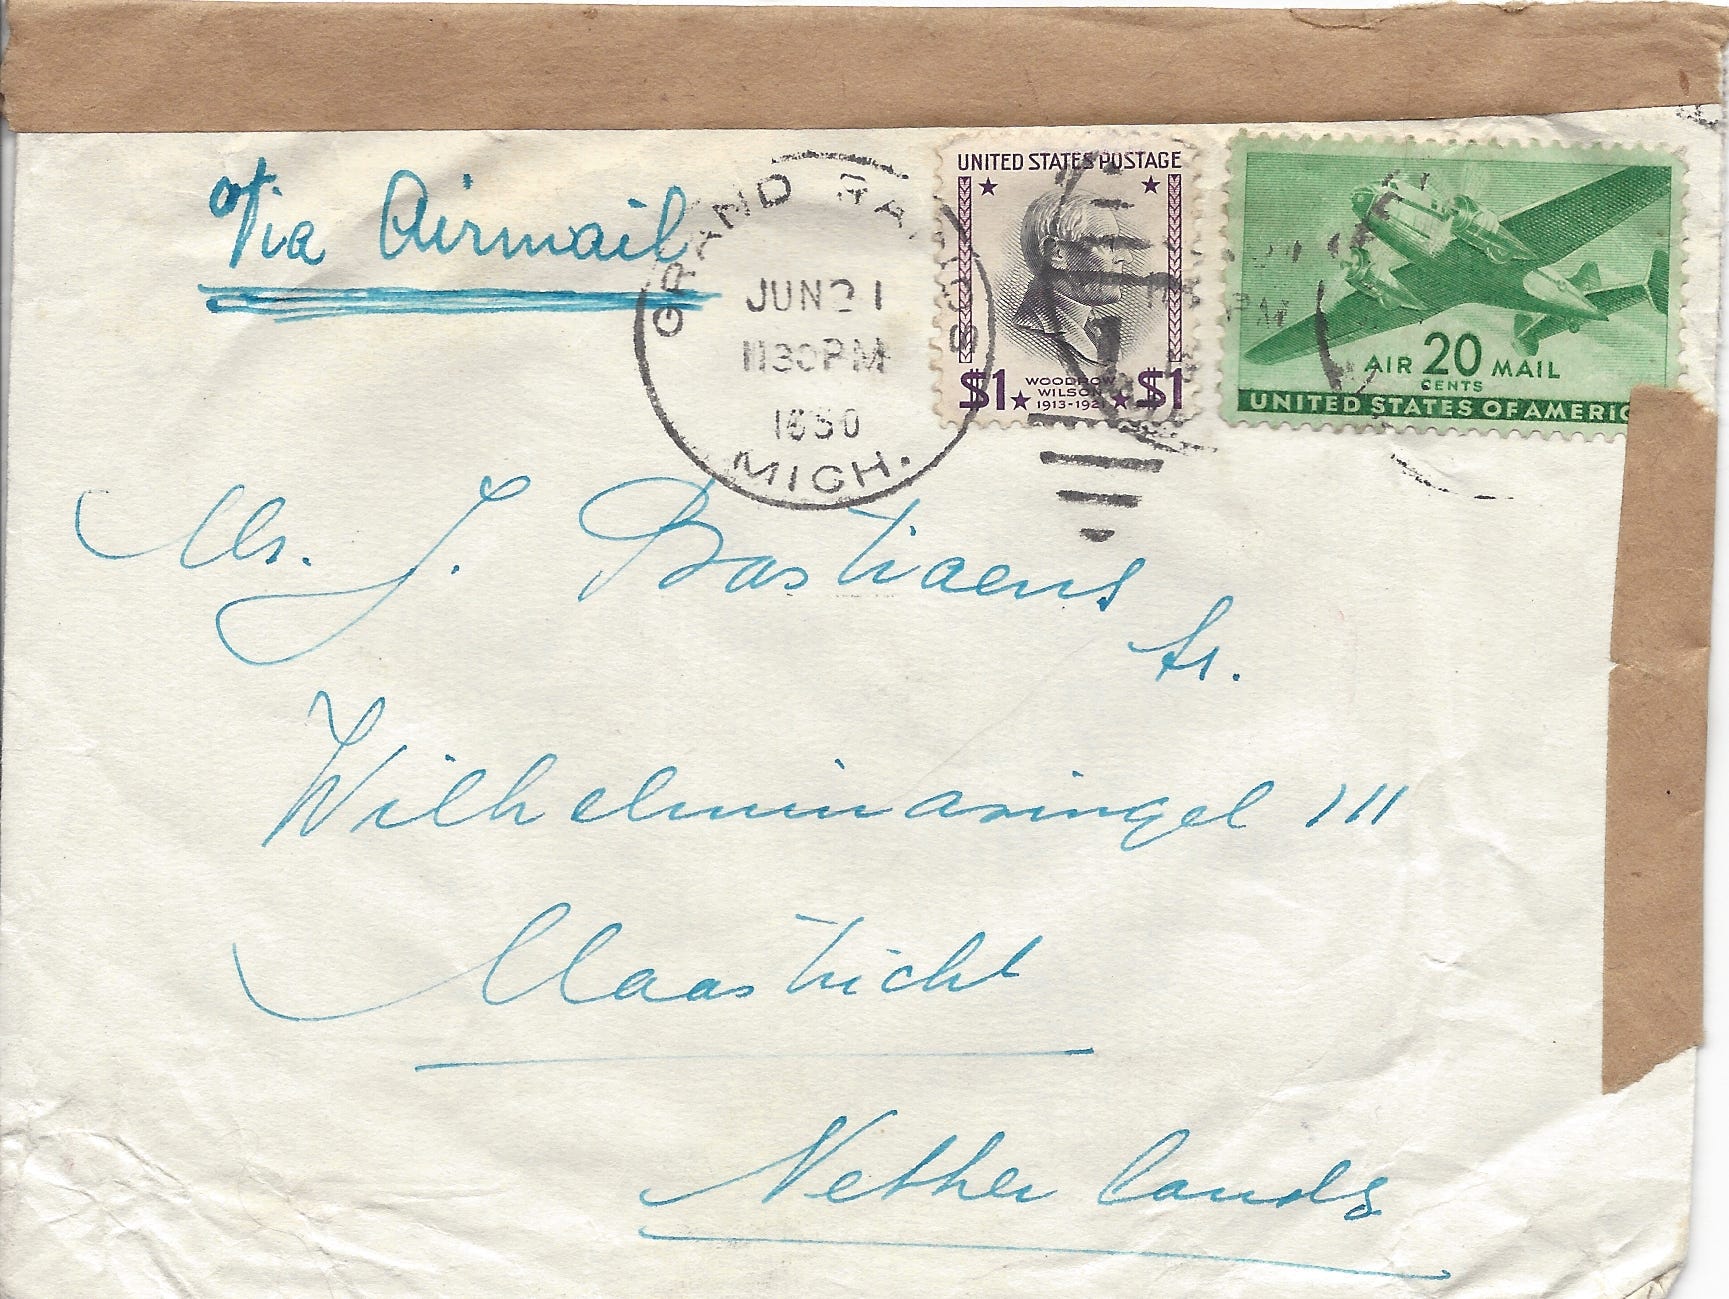 Via Airmail
GRAND RAPIDS
JUN 21
1130 PM
1950
MICH.
UNITED STATES POSTAGE
$1 WOODROW WILSON $1
1913-1921
AIR 20 MAIL
CENTS
UNITED STATES OF AMERIC
Mr. J. Bastiaens
Sr.
Wilhelminasingel 111
Maastricht
Netherlands